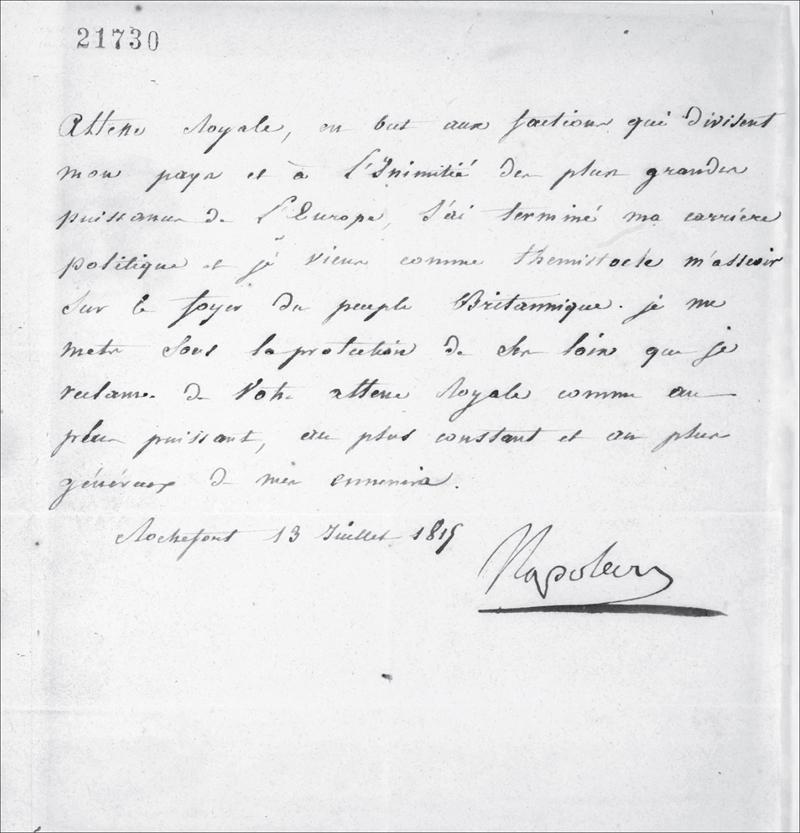 21730
Altesse Royale, en but aux factions qui divisent
mon pays et à L'Inimitié des plus grandes
puissances de L'Europe, J'ai terminé ma carrière
politique et je viens comme themistocle m'asseoir
Sur le foyer du peuple Britannique. je me
mets sous la protection de ses loix que je
reclame de Votre altesse Royale comme au
plus puissant, au plus constant et au plus
généreux de mes ennemis.
Rochefort 13 Juillet 1815
Napoleon